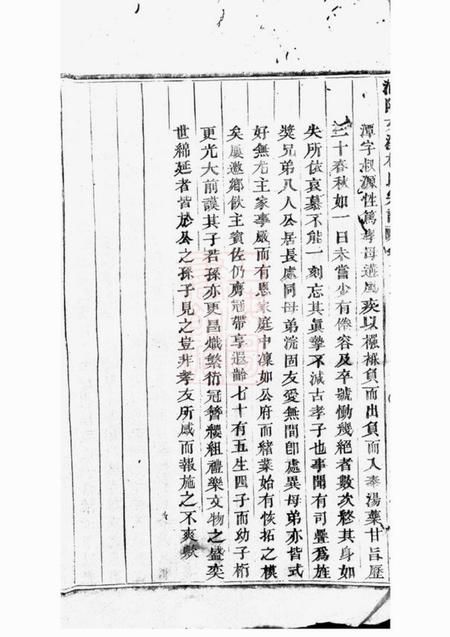 潭字叔源性篤孝母遘風疾以襁褓負而出負而入奉湯藥甘旨歷
三十春秋如一日未嘗少有倦容及卒號慟幾絕者數次終其身如
失所依哀慕不能一刻忘其真摯不減古孝子也事聞有司疊為旌
獎兄弟八人公居長處同母弟浣固友愛無間即處異母弟亦皆式
好無尤主家事嚴而有恩家庭中凜如公府而緒業始有恢拓之模
矣屢邀鄉飲主賓佐仍膺冠帶享遐齡七十有五生四子而幼子桁
更光大前謨其子若孫亦更昌熾繁衍冠簪纓組禮樂文物之盛奕
世綿延者皆於公之孫子見之豈非孝友所感而報施之不爽歟